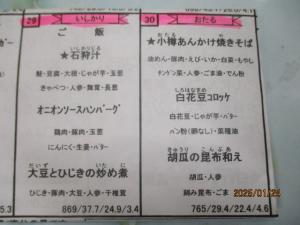 29 いしかり
ご 飯
いしかりじる
★石狩汁
鮭・豆腐・大根・じゃが芋・玉葱
きゃべつ・人参・舞茸・長葱
オニオンソースハンバーグ
鶏肉・豚肉・玉葱
にんにく・生姜・バター
だいず いた に
大豆とひじきの炒め煮
ひじき・豚肉・大豆・人参・干椎茸
869/37.7/24.9/3.4
30 おたる
おたる や
★小樽あんかけ焼きそば
油めん・豚肉・えび・いか・白菜・もやし
チンゲン菜・人参・ごま油・でん粉
しろはなまめ
白花豆コロッケ
白花豆・じゃが芋・バター
パン粉(卵なし)・菜種油
きゅうり こんぶ あ
胡瓜の昆布和え
胡瓜・人参
刻み昆布・ごま
765/29.4/22.4/4.6
5.3
2025/01/24